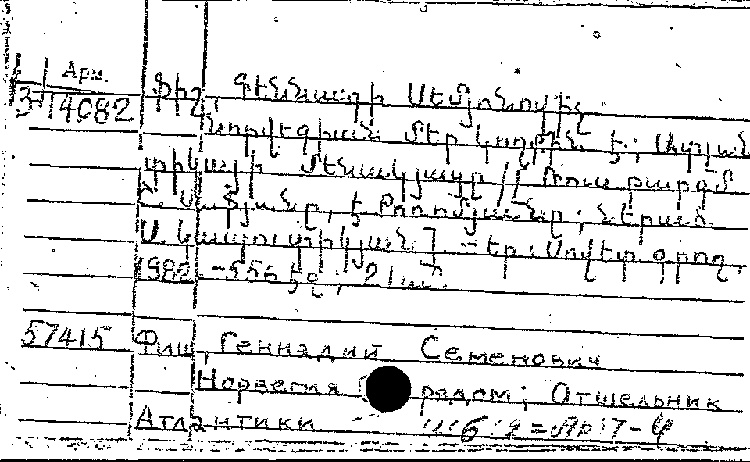 Арм.
3 14082 Ֆիշ, Գեննադի Սեմյոնովիչ
Նորվեգիան մեր կողքին է; Ատլան
տիկայի մենակյացը // Ռուս. թարգմ.
է Քոռոմյաններ; Ներած.
Մ. - Եր.: Սովետ. գրող,
1982. - 556 էջ; 21սմ.
57415 Фиш, Геннадий Семенович
Норвегия рядом; Отшельник
Атлантики